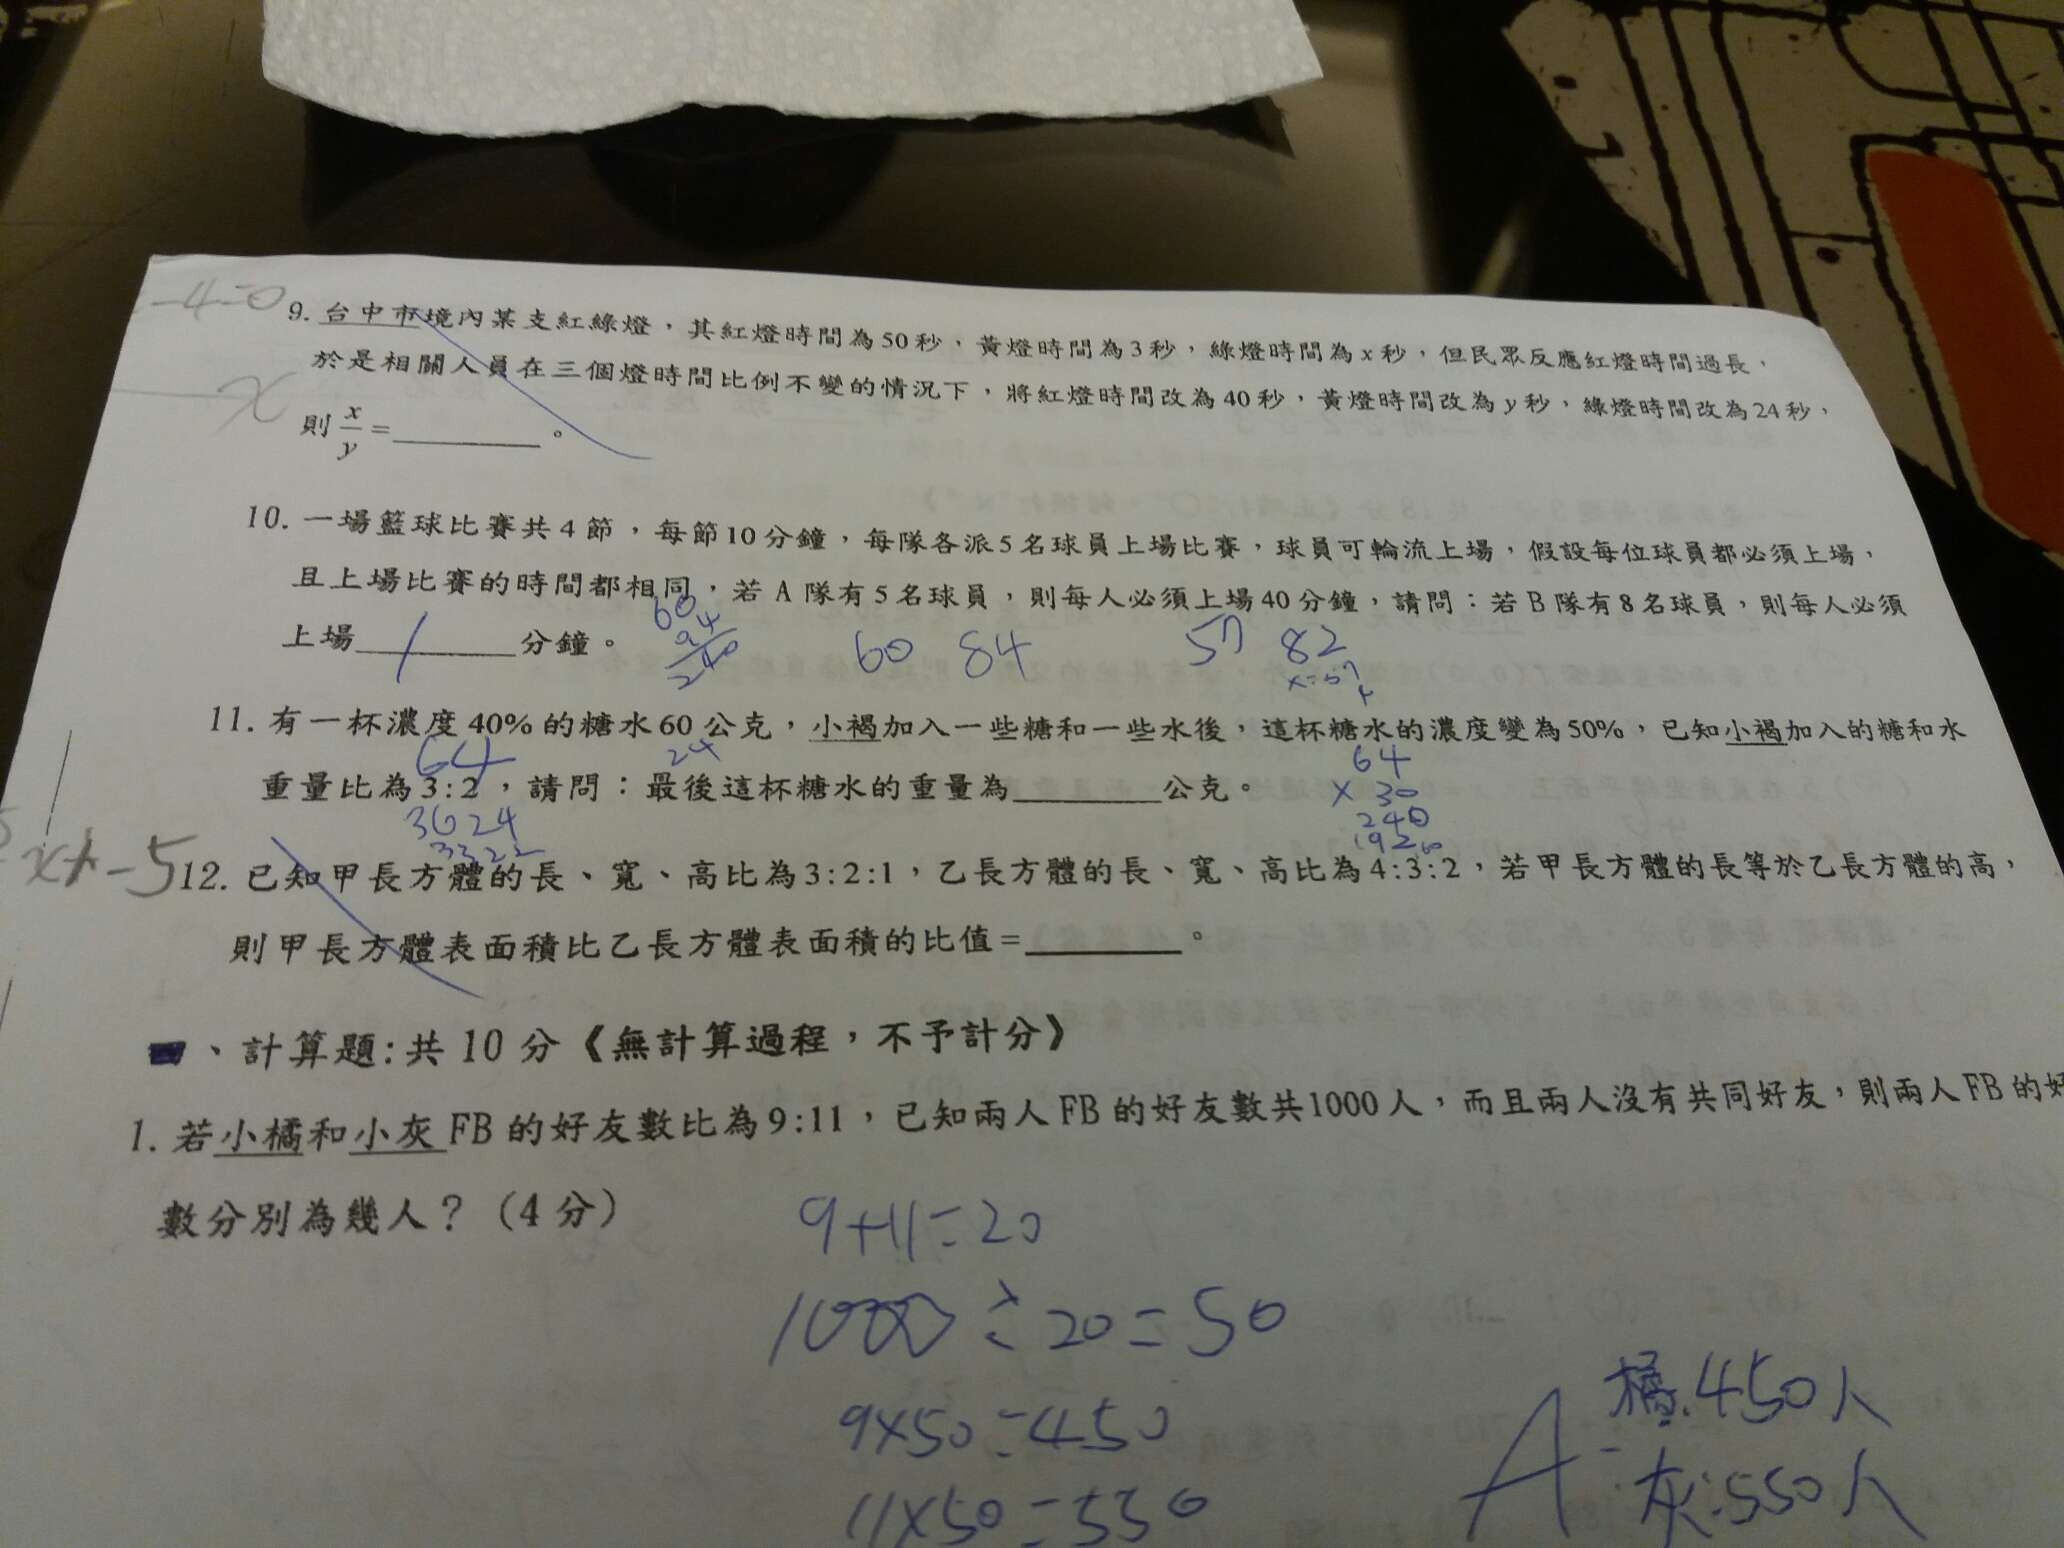 -4=0
9. 台中市境內某支紅綠燈，其紅燈時間為50秒，黃燈時間為3秒，綠燈時間為x秒，但民眾反應紅燈時間過長，
於是相關人員在三個燈時間比例不變的情況下，將紅燈時間改為40秒，黃燈時間改為y秒，綠燈時間改為24秒，
x
則x/y=________。
10. 一場籃球比賽共4節，每節10分鐘，每隊各派5名球員上場比賽，球員可輪流上場，假設每位球員都必須上場，
且上場比賽的時間都相同，若A隊有5名球員，則每人必須上場40分鐘，請問：若B隊有8名球員，則每人必須
上場________分鐘。
60
240
60 84
57 82
11. 有一杯濃度40%的糖水60公克，小褐加入一些糖和一些水後，這杯糖水的濃度變為50%，已知小褐加入的糖和水
64 24 64
重量比為3:2，請問：最後這杯糖水的重量為________公克。
× 30
36 24
240
12. 已知甲長方體的長、寬、高比為3:2:1，乙長方體的長、寬、高比為4:3:2，若甲長方體的長等於乙長方體的高，
則甲長方體表面積比乙長方體表面積的比值=________。
、計算題:共10分《無計算過程，不予計分》
1. 若小橘和小灰FB的好友數比為9:11，已知兩人FB的好友數共1000人，而且兩人沒有共同好友，則兩人FB的好
數分別為幾人？（4分）
9+11=20
1000÷20=50
9×50=450
11×50=550
A: 橘:450人
灰:550人